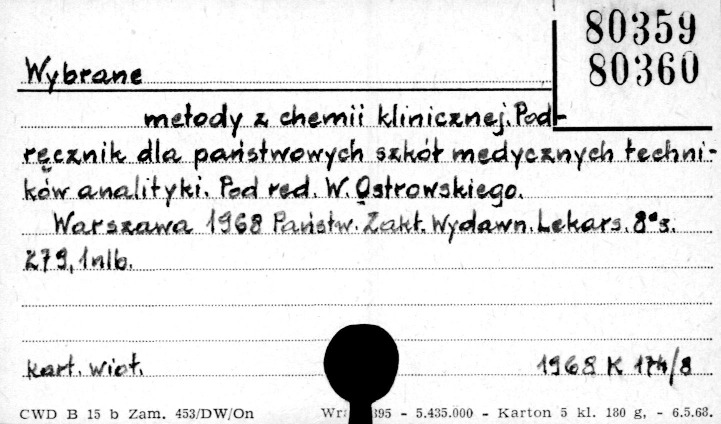 80359
80360
Wybrane
metody z chemii klinicznej. Pod-
ręcznik dla państwowych szkół medycznych techni-
ków analityki. Pod red. W. Ostrowskiego.
Warszawa 1968 Państw. Zakł. Wydawn. Lekars. 8° s.
279, 1 nlb.
kart. wiot. 1968 K 174/8
CWD B 15 b Zam. 453/DW/On 395 - 5.435.000 - Karton 5 kl. 180 g, - 6.5.68.